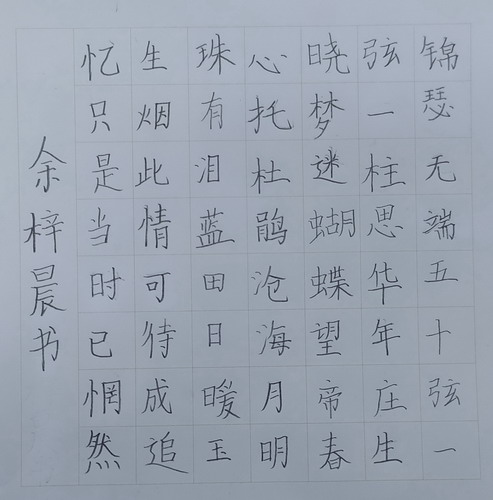 锦瑟无端五十弦一
弦一柱思华年庄生
晓梦迷蝴蝶望帝春
心托杜鹃沧海月明
珠有泪蓝田日暖玉
生烟此情可待成追
忆只是当时已惘然
余梓晨书